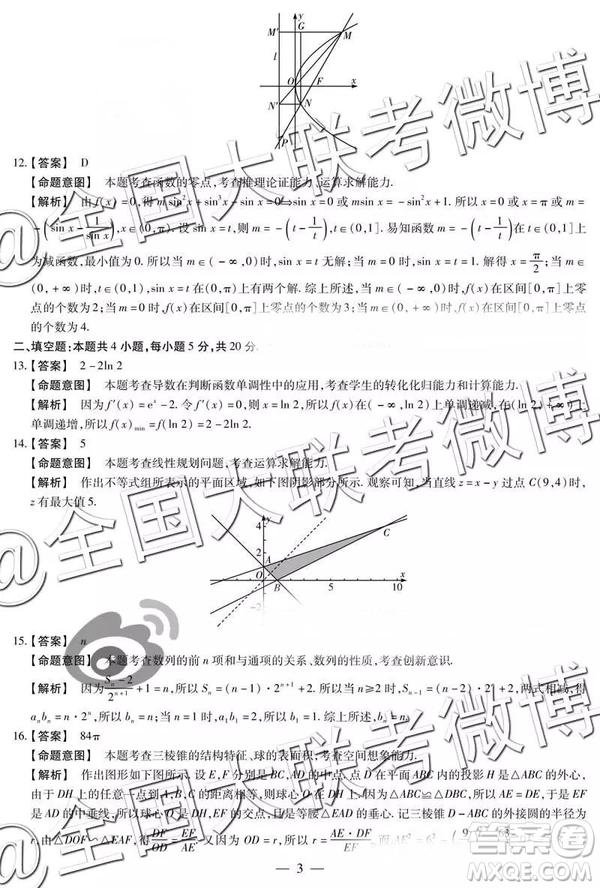 M′
y
G
M
l
O
F
x
N′
N
P
12.【答案】 D
【命题意图】 本题考查函数的零点,考查推理论证能力、运算求解能力.
【解析】 由f(x)=0,得m sin²x+sin³x-sin x=0⇒sin x=0或msin x=-sin²x+1.所以x=0或x=π或m=
-(sin x-1/sin x),x∈(0,π).设sin x=t,则m=-(t-1/t),t∈(0,1].易知函数m=-(t-1/t),t∈(0,1]
为减函数,最小值为0.所以当m∈(-∞,0)时,sin x=t无解;当m=0时,t=1,sin x=t=1.解得x=π/2;当m∈
(0,+∞)时,t∈(0,1),sin x=t在(0,π)上有两个解.综上所述,当m∈(-∞,0)时,f(x)在区间[0,π]上零
点的个数为2;当m=0时,f(x)在区间[0,π]上零点的个数为3;当m∈(0,+∞)时,f(x)在区间[0,π]上零点
的个数为4.
二、填空题:本题共4小题,每小题5分,共20分.
13.【答案】 2-2ln 2
【命题意图】 本题考查导数在判断函数单调性中的应用,考查学生的转化化归能力和计算能力.
【解析】 因为f′(x)=eˣ-2.令f′(x)=0,则x=ln 2,所以f(x)在(-∞,ln 2)上单调递减,在(ln 2,+∞)上
单调递增,所以f(x)min=f(ln 2)=2-2ln 2.
14.【答案】 5
【命题意图】 本题考查线性规划问题,考查运算求解能力.
【解析】 作出不等式组所表示的平面区域,如下图阴影部分所示.观察可知,当直线z=x-y过点C(9,4)时,
z有最大值5.
4
C
2
A
O
B
5
10
-2
15.【答案】 n
【命题意图】 本题考查数列的前n项和与通项的关系、数列的性质,考查创新意识.
【解析】 因为(Sₙ-2)/2ⁿ⁺¹+1=n,所以Sₙ=(n-1)·2ⁿ⁺¹+2.所以当n≥2时,Sₙ₋₁=(n-2)·2ⁿ+2,两式相减,得
aₙbₙ=n·2ⁿ,所以bₙ=n;当n=1时,a₁b₁=2,所以b₁=1.综上所述,bₙ=n.
16.【答案】 84π
【命题意图】 本题考查三棱锥的结构特征、球的表面积;考查空间想象能力.
【解析】 作出图形如下图所示.设E,F分别是BC,AD的中点,点D在平面ABC内的投影H是△ABC的外心,
由于DH上的任意一点到A,B,C的距离相等,则球心O在DH上.因为△ABC≌△DBC,所以AE=DE,于是EF
是AD的中垂线,所以球心O是DH,EF的交点,且是△DBC的外心.记三棱锥D-ABC的外接圆的半径为
r,由△DOF∽△EAF,得DF/EF=OD/AE.又因为OD=r,所以r=AE·DF/EF.而AE²=6²-
— 3 —
@全国大联考微博
@全国大联考微博
@全国大联考微博
答案圈
MXQE.COM